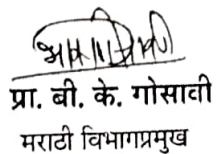 प्रा. बी. के. गोसावी
मराठी विभागप्रमुख